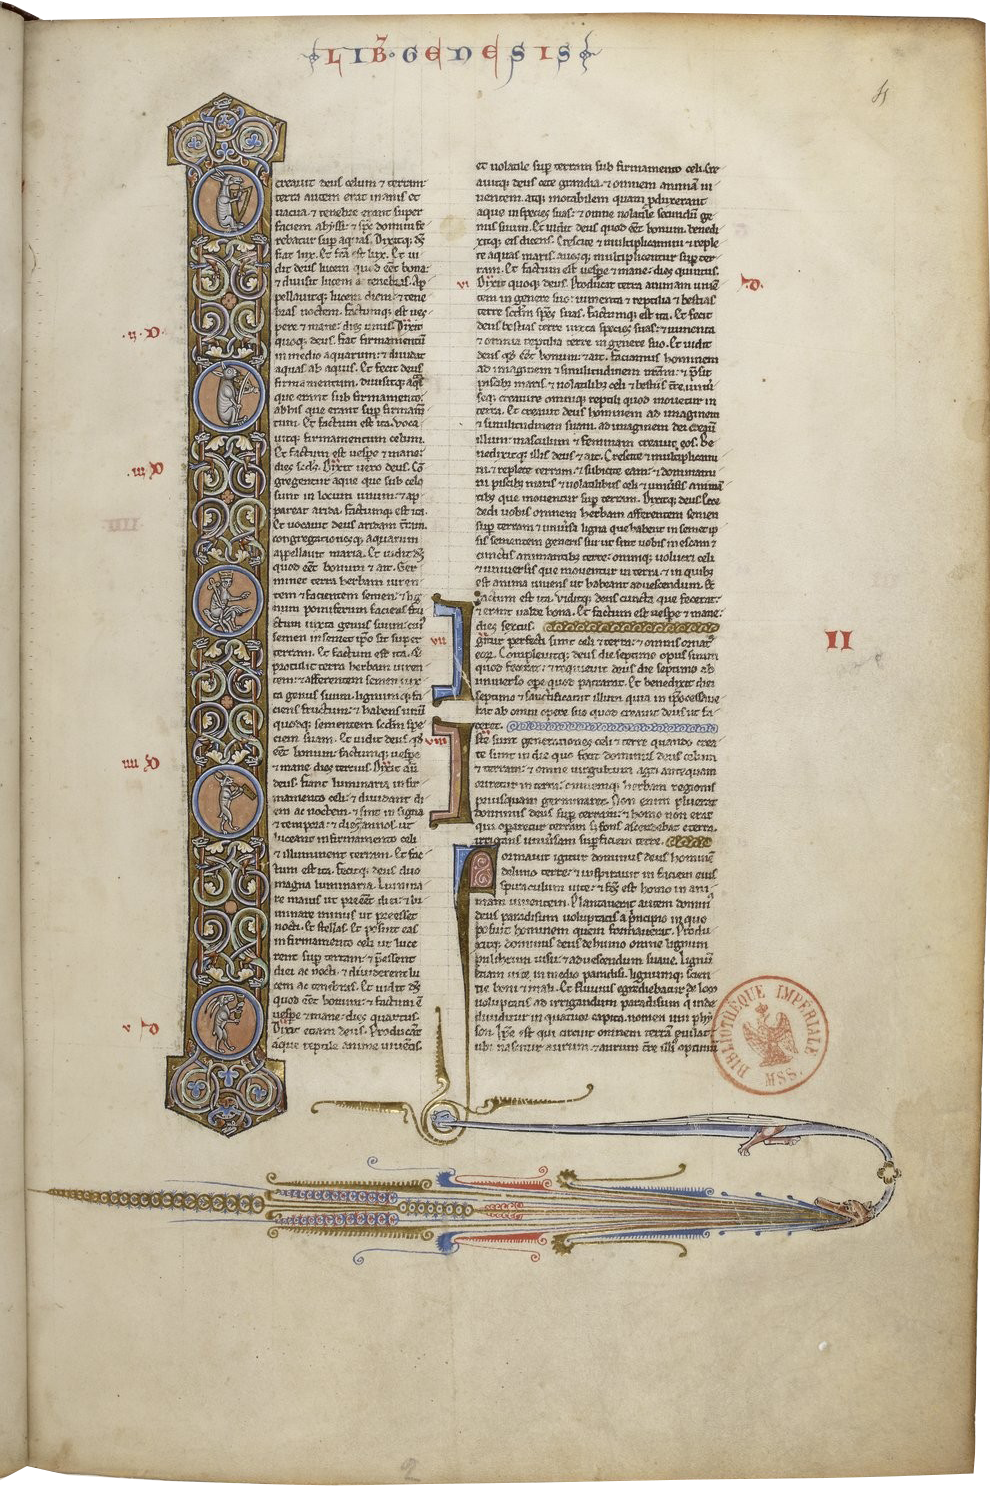 LIB̃ · GENESIS
creauit deus celum & terram
terra autem erat inanis et
uacua . & tenebre erant super
faciem abyssi . & sp̃s domini fe
rebatur sup aquas. Dixitq; d̃s
fiat lux. Et fc̃a est lux. Et ui
dit deus lucem quod eẽt bona :
& diuisit lucem a tenebras. Ap
pellauitq; lucem diem : & tene
bras noctem. factumq; est ues
pere & mane : dies unus. Dixit
quoq; deus. fiat firmamentũ
in medio aquarum : & diuidat
aquas ab aquis. Et fecit deus
firmamentum, diuisitq; aq̃s
que erant sub firmamento.
ab his que erant sup firmam̃
tum. Et factum est ita. Voca
uitq; firmamentum celum.
Et factum est uesp̃e & mane :
dies sc̃ds. Dixit uero deus. Cõ
gregentur aque que sub celo
sunt in locum unum : & ap
pareat arida. factumq; est ita.
Et uocauit deus aridam t̃ram.
congregationesq; aquarum
appellauit maria. Et uidit d̃s
quod eẽt bonum & ait. Ger
minet terra herbam uiren
tem & facientem semen : & lig
num pomiferum faciens fru
ctum iuxta genus suum : cui9
semen in semet ip̃o sit super
terram. Et factum est ita. &
protulit terra herbam uiren
tem : & afferentem semen iux
ta genus suum. lignumq; fa
ciens fructum : & habens unũ
quodq; sementem sc̃dm spe
ciem suam. Et uidit deus q̃d
eẽt bonum : factumq; uesp̃e
& mane dies tercius. Dixit aũ
deus. fiant luminaria in fir
mamento celi : & diuidant di
em ac noctem . & sint in signa
& tempora : & dies & annos . ut
luceant in firmamento celi
& illuminent terram. Et fac
tum est ita. fecitq; deus duo
magna luminaria. Lumina
re maius ut preẽet diei : & lu
minare minus ut preesset
nocti. & stellas. Et posuit eas
in firmamento celi ut luce
rent sup terram : & p̃essent
diei ac nocti . & diuiderent lu
cem ac tenebras. Et uidit d̃s
quod eẽt bonum : & factum ẽ
uesp̃e & mane : dies quartus.
Dixit etiam deus. Producãt
aque reptile anime uiuentis.
et uolatile sup terram sub firmamento celi. Cre
auitq; deus cete grandia . & omnem animã ui
uentem . atq; motabilem quam p̃duxerant
aque in species suas : & omne uolatile secundũ ge
nus suum. Et uidit deus quod eẽt bonum. benedi
xitq; eis dicens. Crescite & multiplicamini : & reple
te aquas maris. auesq; multiplicentur sup ter
ram. Et factum est uesp̃e & mane : dies quintus.
Dixit quoq; deus. Producat terra animam uiuẽ
tem in genere suo : iumenta & reptilia & bestias
terre sc̃dm sp̃es suas. factumq; est ita. Et fecit
deus bestias terre iuxta species suas : & iumenta
& omnia reptilia terre in genere suo. Et uidit
deus q̃d eẽt bonum : & ait. faciamus hominem
ad imaginem & similitudinem nr̃am : & p̃sit
piscib; maris & uolatilib; celi & bestiis t̃re, uni
seq; creature omniq; reptili quod mouetur in
terra. Et creauit deus hominem ad imaginem
& similitudinem suam. ad imaginem dei creauit
illum : masculum & feminam creauit eos. Be
nedixitq; illis deus & ait. Crescite & multiplicami
ni . & replete terram : & subicite eam : & dominami
ni piscib; maris & uolatilibus celi & uniu̾sis animã
tib; que mouentur sup terram. Dixitq; deus. Ecce
dedi uobis omnem herbam afferentem semen
sup terram & uniu̾sa ligna que habent in semet ip
sis sementem generis sui ut sint uobis in escam &
cunctis animantib; terre : omniq; uolucri celi
& uniuersis que mouentur in terra . & in quib;
est anima uiuens ut habeant ad uescendum. Et
factum est ita. Viditq; deus cuncta que fecerat :
& erant ualde bona. Et factum est uesp̃e & mane :
dies sextus.
IGitur perfecti sunt celi & terra : & omnis ornat9
eor̃. Compleuitq; deus die septimo opus suum
quod fecerat : & requieuit deus die septimo ab
uniuerso ope quod patrarat. Et benedixit diei
septimo & sanctificauit illum : quia in ip̃o cessaue
rat ab omni opere suo quod creauit deus ut fa
ceret.
Iste sunt generationes celi & terre quando crea
te sunt in die quo fecit dominus deus celum
& terram : & omne uirgultum agri antequam
oriretur in terra : omnemq; herbam regionis
priusquam germinaret. Non enim pluerat
dominus deus sup terram : & homo non erat
qui operaretur terram s; fons ascendebat e terra .
irrigans uniu̾sam sup̃ficiem terre.
Formauit igitur dominus deus hominẽ
de limo terre : & inspirauit in faciem eius
spiraculum uite : & fc̃s est homo in ani
mam uiuentem. Plantauerat autem domin9
deus paradisum uoluptatis a p̃ncipio in quo
posuit hominem quem formauerat. Produ
xitq; dominus deus de humo omne lignum
pulchrum uisu : & ad uescendum suaue. Lignũ
etiam uite in medio paradisi . lignumq; scien
tie boni & mali. Et fluuius egrediebatur de loco
uoluptatis ad irrigandum paradisum q̃ inde
diuiditur in quatuor capita. nomen uni phy
son. Ip̃e est qui circuit omnem terrã euilat
ubi nascitur aurum . & aurum t̃re illi9 optimũ
VI
VII
VIII
II
BIBLIOTHÈQUE IMPÉRIALE
MSS.
2